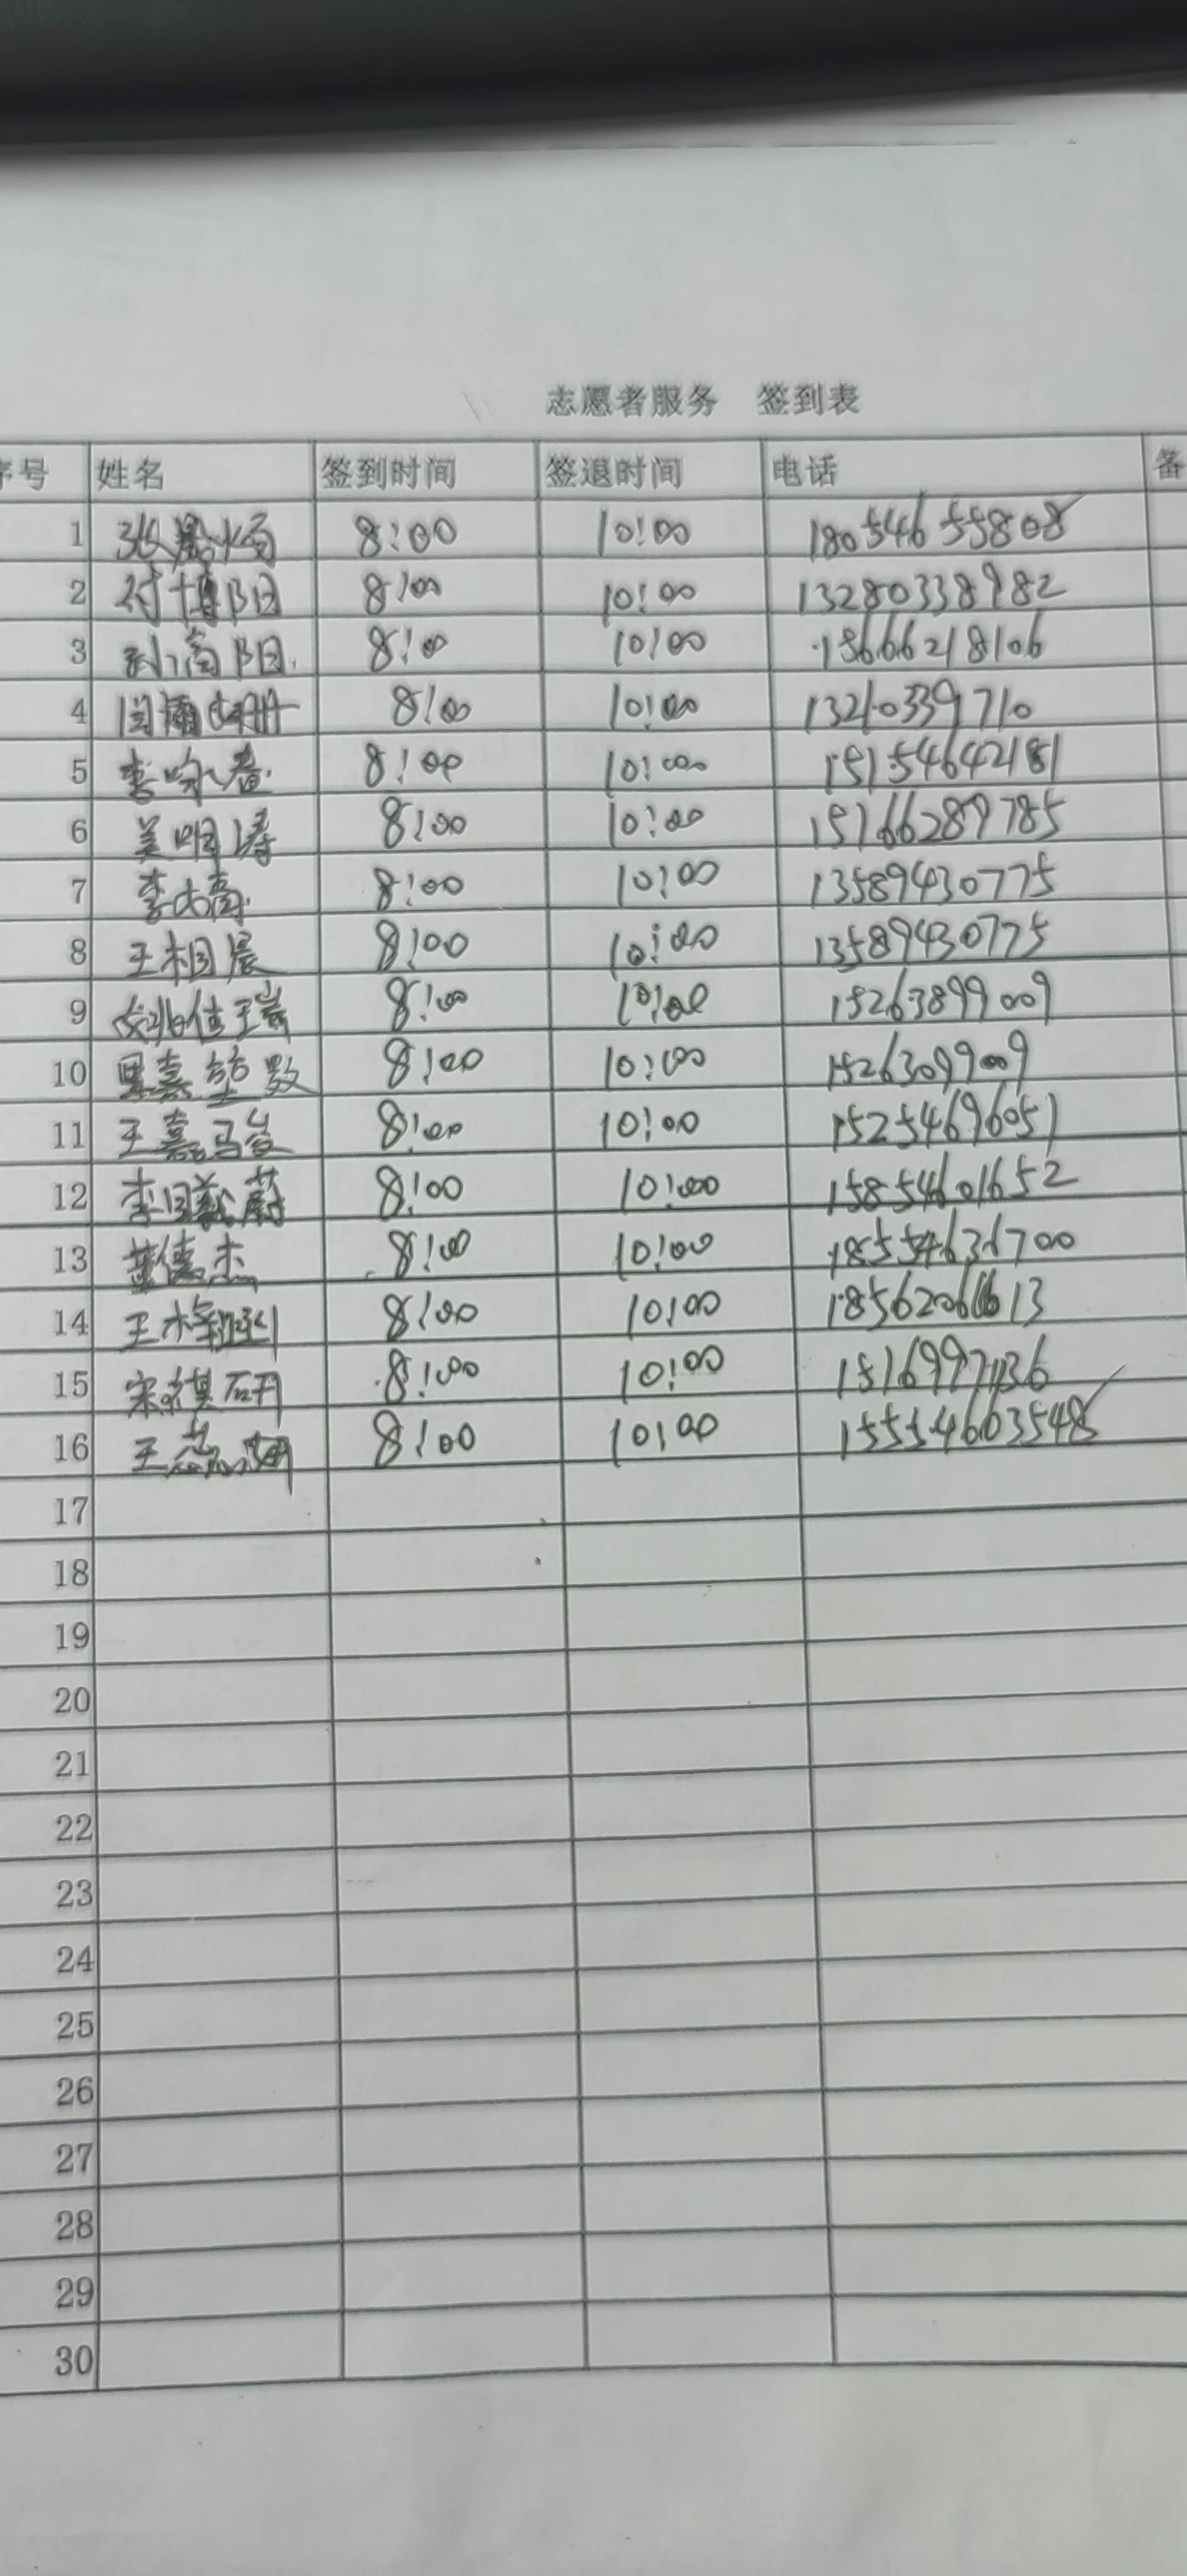 志愿者服务 签到表
序号 姓名 签到时间 签退时间 电话 备
1 8:00 10:00 18054655808
2 付博阳 8:00 10:00 13280338982
3 刘高阳 8:00 10:00 15666218106
4 8:00 10:00 13210339710
5 李咏春 8:00 10:00 15154642181
6 姜明涛 8:00 10:00 15166289785
7 李大高 8:00 10:00 13589430775
8 王相晨 8:00 10:00 13589430775
9 8:00 10:00 15263899009
10 8:00 10:00 15263099009
11 王嘉 8:00 10:00 15254696051
12 李 蔚 8:00 10:00 15854601652
13 董德杰 8:00 10:00
14 王梓 8:00 10:00
15 宋祺研 8:00 10:00
16 王蕊 8:00 10:00
17
18
19
20
21
22
23
24
25
26
27
28
29
30